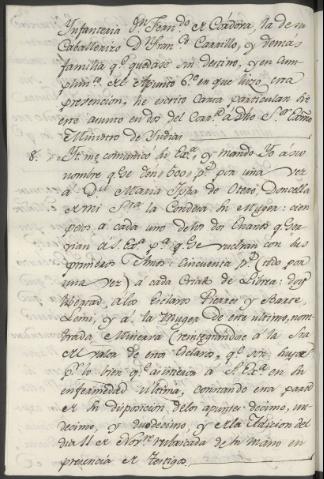 Infanteria Dn. Ferndo. de Cordova, la de su
Caballerizo Dn. Franco. Carrillo, y demás
familia qe. quedase sin destino, y en cum-
plimto. del Apunte 6º. en que hizo esta
prevencion, he escrito Carta particular
asunto en dos del Corte. a dho Sor. Exmo
Ministro de Yndias
8. Yt. me comunicó su Exa. y mando Yo á su
nombre qe. se den 600 ps. por una vez
a Da. Maria Josfa de Otero, Doncella
de mi Sra. la Condesa su Muger: cien
pesos a cada uno de los dos Enanos qe. ser-
vian a S. Exa. pa. qe. se vuelvan con sus
primeros Amos: Cincuenta ps. (todo por
una vez) a cada Criado de Librea: doy
libertad, a los Esclavos Vicente y Barto-
lomé, y á la Muger de este ultimo, nom-
brada, (reintegrandose a la Sra.
el valor de esta Esclava, qe. es suya)
pr. lo bien qe. asistieron á S. Exa. en su
enfermedad ultima, constando esta parte
de su disposicion de los apuntes decimo, un-
decimo, y duodecimo, y de la Adiccion del
dia 11 de Novre. rubricada de su mano en
presencia de testigos.